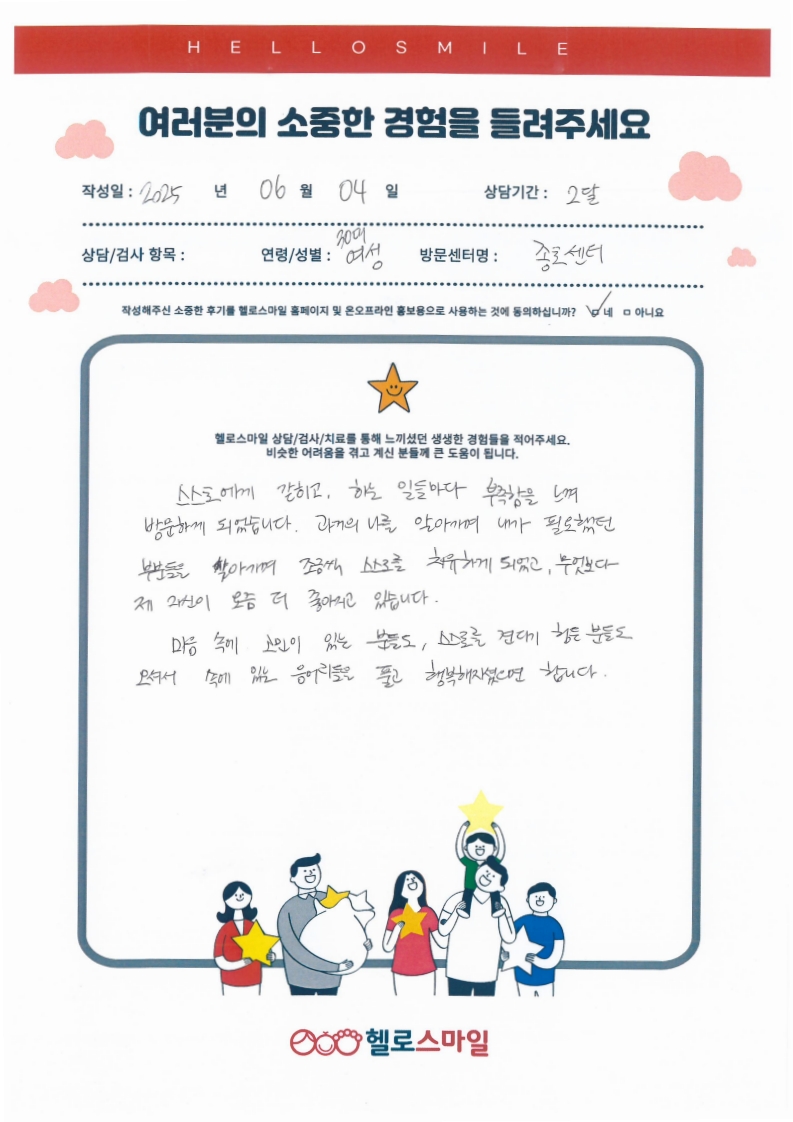 HELLOSMILE
여러분의 소중한 경험을 들려주세요
작성일 : 2025 년 06 월 04 일 상담기간 : 2달
상담/검사 항목 : 연령/성별 : 30대 여성 방문센터명 : 종로센터
작성해주신 소중한 후기를 헬로스마일 홈페이지 및 온오프라인 홍보용으로 사용하는 것에 동의하십니까? ☑ 네 □ 아니요
헬로스마일 상담/검사/치료를 통해 느끼셨던 생생한 경험들을 적어주세요.
비슷한 어려움을 겪고 계신 분들께 큰 도움이 됩니다.
스스로에게 갇히고, 하는 일들마다 부족함을 느껴
방문하게 되었습니다. 과거의 나를 알아가며 내가 필요했던
부분들을 찾아가며 조금씩 스스로를 치유하게 되었고, 무엇보다
제 자신이 요즘 더 좋아지고 있습니다.
마음 속에 고민이 있는 분들도, 스스로를 견디기 힘든 분들도
오셔서 속에 있는 응어리들을 풀고 행복해지셨으면 합니다.
헬로스마일